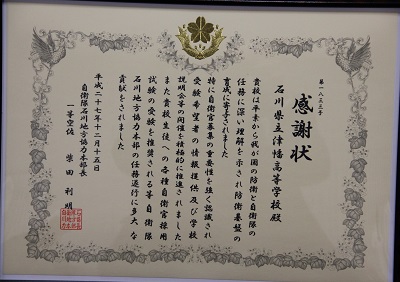 第一八三三号
感謝状
石川県立津幡高等学校殿
貴校は平素から我が国の防衛と自衛隊の
任務に深い理解を示され防衛基盤の
育成に寄与されました
特に自衛官募集の重要性を強く認識され
受験希望者の情報提供及び学校
説明会等の開催を積極的に推進されました
また貴校生徒への各種自衛官採用
試験の受験を推奨される等自衛隊
石川地方協力本部の任務遂行に多大な
貢献をされました
平成二十七年十二月十五日
自衛隊石川地方協力本部長
一等空佐 柴田利明